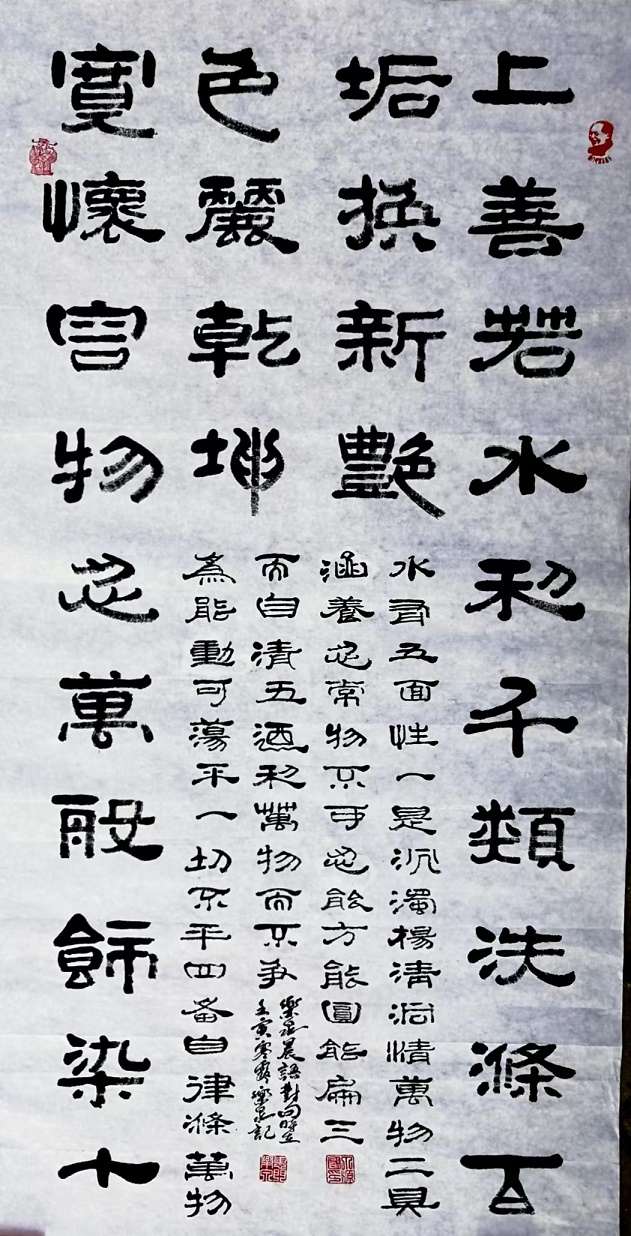 上善若水利千類洗滌百
垢換新艷
寬懷容物忍萬般飾染十
色麗乾坤
水有五面性一是沉濁揚清情萬物二具
涵養忍常物不可忍能方能圓能扁三
為能動可蕩平一切不平四备自律滌萬物
而自清五迺利萬物而不争
晨語對句
壬寅寒露記